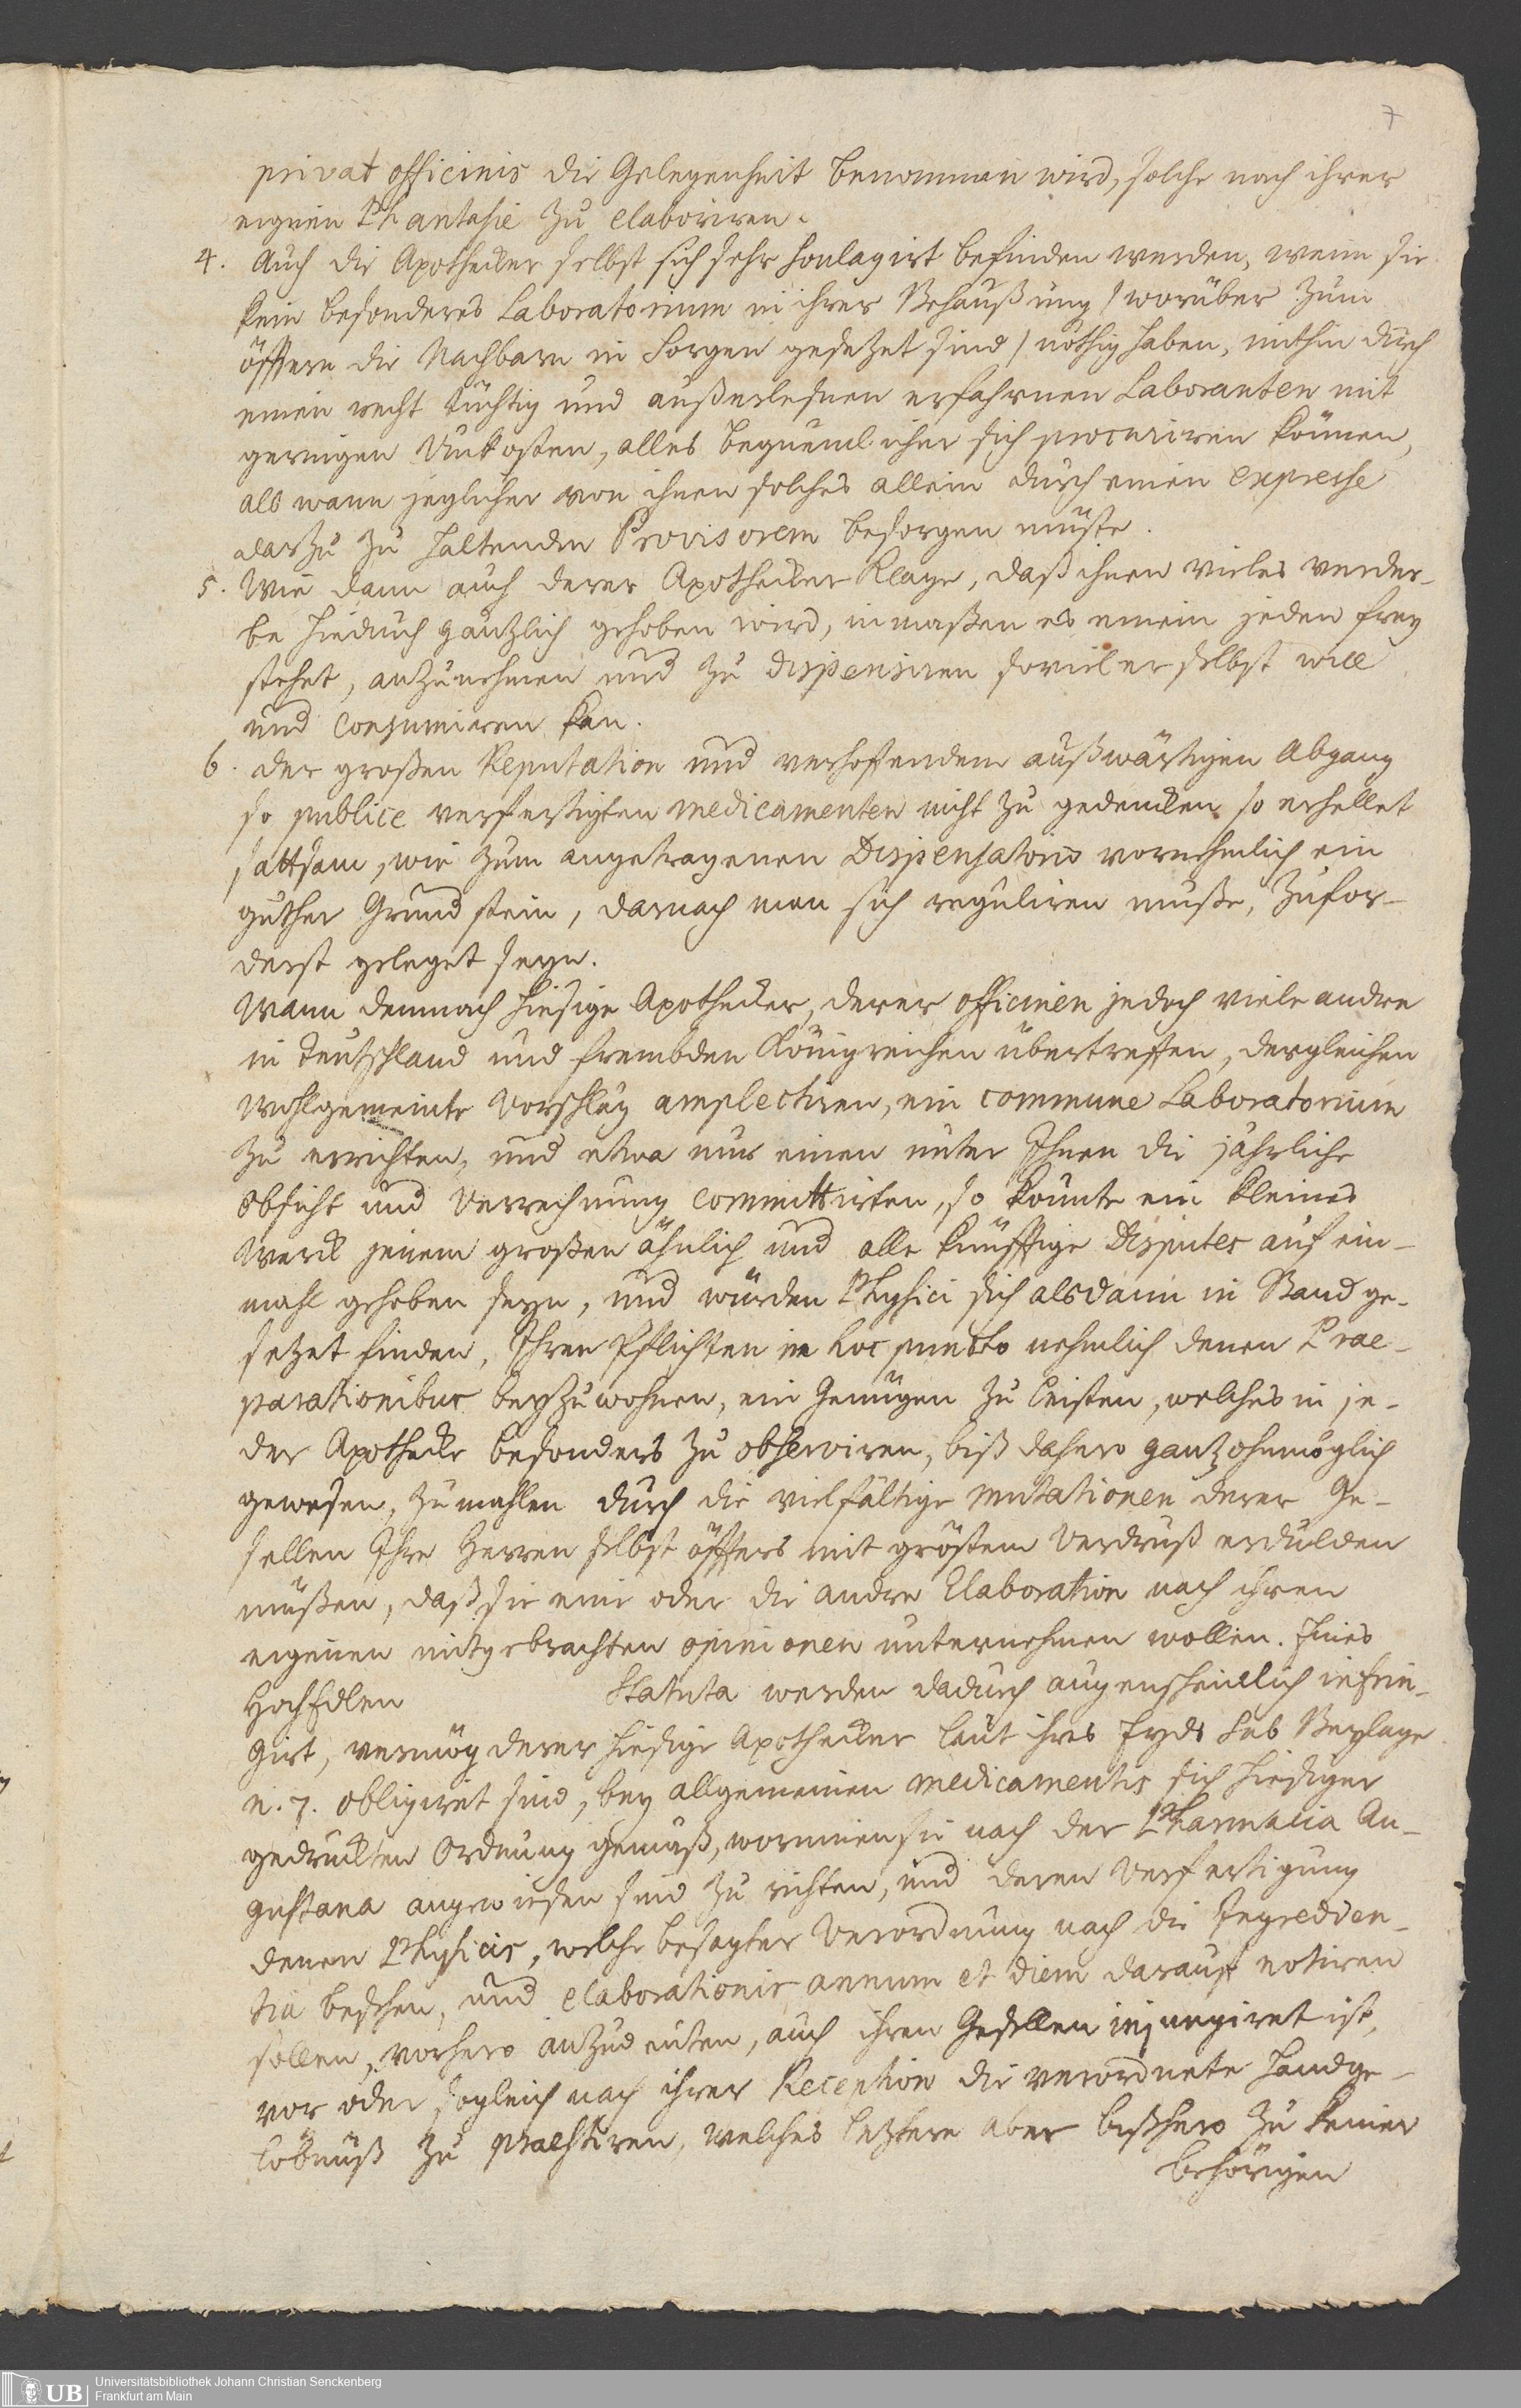 7
privat officinis die Gelegenheit benommen wird, solche nach ihrer
eignen Phantasie zu elaboriren.
4. Auch die Apothecker selbst sich sehr soulagirt befinden werden, wenn sie
kein besonderes Laboratorium in ihrer Behaußung / worüber zum
öfftern die Nachbarn in Sorgen gesetzet sind / nöthig haben, mithin durch
einen recht tüchtig und außerlesnen erfahrnen Laboranten mit
geringen Unkosten, alles bequemlicher sich procuriren können,
als wann jeglicher von ihnen solches allein durch einen expresse
darzu zu haltenden Provisorem besorgen müste.
5. Wie dann auch derer Apothecker Klage, daß ihnen vieles verder-
be hieduch gäntzlich gehoben wird, inmaßen es einem jeden frey
stehet, anzunehmen und zu dispensiren soviel er selbst will
und consumiren kan.
6. der großen Reputation und verhoffendem außwärtigen Abgang
so publice verfertigten medicamenten nicht zu gedencken so erhellet
sattsam, wie zum angetragenen Dispensatorio vornehmlich ein
guther Grundstein, darnach man sich reguliren müße, zufor-
derst geleget seyn.
Wann demnach hiesige Apothecker, derer officinen jedoch viele andre
in Teutschland und frembden Königreichen übertreffen, dergleichen
wohlgemeinte Vorschläg amplectiren, ein commune Laboratorium
zu errichten, und etwa nur einen unter Ihnen die jährliche
Obsicht und Verrechnung committirten, so könnte ein kleines
Werck jenem großen ähnlich und alle künfftige Disputes auf ein-
mahl gehoben seyn, und würden Physici sich alsdann in Stand ge-
setzet finden, Ihren Pflichten in hoc puncto nehmlich denen Prae-
parationibus beyzuwohnen, ein Genügen zu leisten, welches in je-
der Apothecke besonders zu observiren, biß dahero gantz ohnmöglich
gewesen, zumahlen durch die vielfältige mutationen derer Ge-
sellen Ihre Herren selbst öffters mit gröstem Verdruß erdulden
müßen, daß sie eine oder die andre Elaboration nach ihren
eigenen mitgebrachten opinionen unternehmen wollen. Eines
HochEdlen Statuta werden dadurch augenscheinlich infrin-
girt, vermög derer hiesige Apothecker laut ihres Eyds sub Beylage
n. 7. obligiret sind, bey allgemeinen medicamentis sich hiesiger
gedruckten Ordnung gemäß, worinnen sie nach der Pharmacia Au-
gustana angewiesen sind zu richten, und deren Verfertigung
denen Physicis, welche besagter Verordnung nach die Ingredien-
tia besehen, und elaborationis annum et diem darauf notiren
sollen, vorhero anzudeuten, auch ihren Gesellen injungiret ist,
vor oder sogleich nach ihrer Reception die verordnete Handge-
löbnüß zu praestiren, welches letztere aber bißhero zu keiner
behörigen
UB
Universitätsbibliothek Johann Christian Senckenberg
Frankfurt am Main